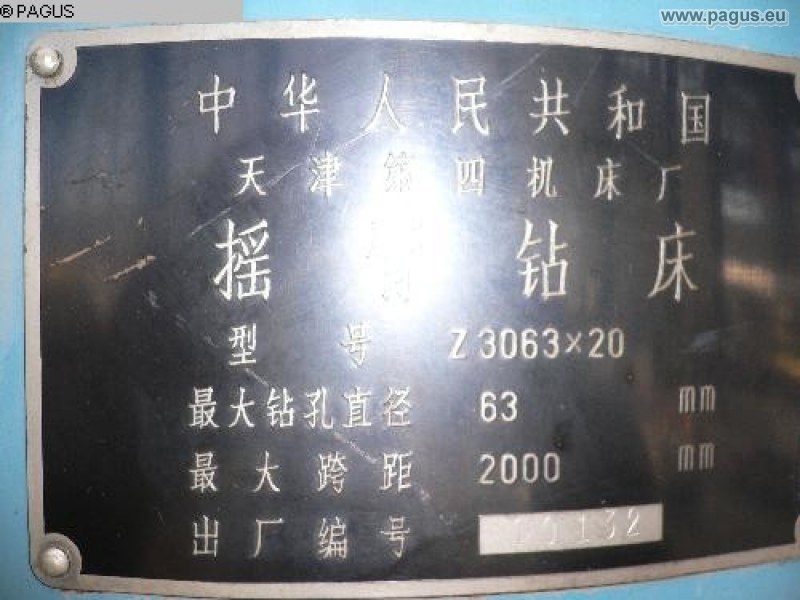 © PAGUS
www.pagus.eu
中华人民共和国
天津第四机床厂
摇臂钻床
型号 Z3063×20
最大钻孔直径 63 mm
最大跨距 2000 mm
出厂编号